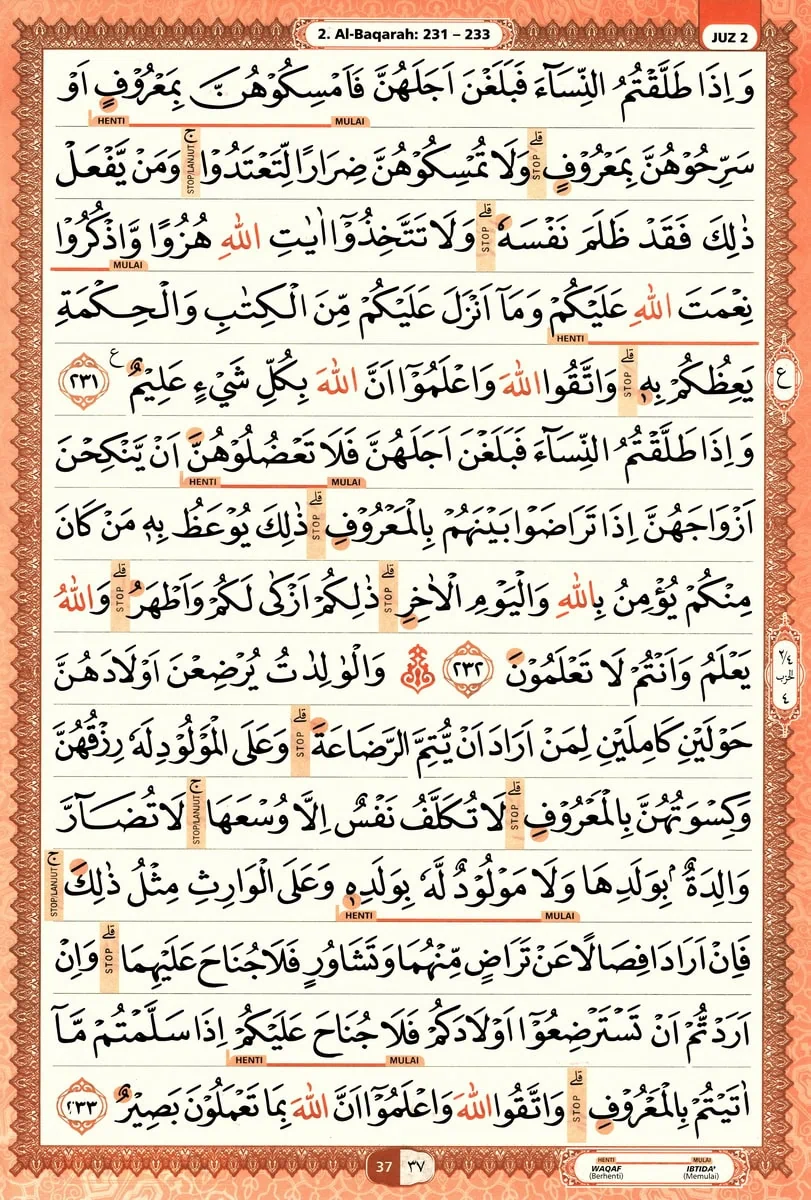 2. Al-Baqarah: 231 – 233
JUZ 2
وَاِذَا طَلَّقْتُمُ النِّسَاۤءَ فَبَلَغْنَ اَجَلَهُنَّ فَاَمْسِكُوْهُنَّ بِمَعْرُوْفٍ اَوْ
HENTI MULAI
سَرِّحُوْهُنَّ بِمَعْرُوْفٍ ۗ STOP وَلَا تُمْسِكُوْهُنَّ ضِرَارًا لِّتَعْتَدُوْا ۚ STOP/LANJUT وَمَنْ يَّفْعَلْ
ذٰلِكَ فَقَدْ ظَلَمَ نَفْسَهٗ ۗ STOP وَلَا تَتَّخِذُوْٓا اٰيٰتِ اللّٰهِ هُزُوًا وَّاذْكُرُوْا
MULAI
نِعْمَتَ اللّٰهِ عَلَيْكُمْ وَمَآ اَنْزَلَ عَلَيْكُمْ مِّنَ الْكِتٰبِ وَالْحِكْمَةِ
HENTI
يَعِظُكُمْ بِهٖ ۗ STOP وَاتَّقُوا اللّٰهَ وَاعْلَمُوْٓا اَنَّ اللّٰهَ بِكُلِّ شَيْءٍ عَلِيْمٌ ع ٢٣١
ع
وَاِذَا طَلَّقْتُمُ النِّسَاۤءَ فَبَلَغْنَ اَجَلَهُنَّ فَلَا تَعْضُلُوْهُنَّ اَنْ يَّنْكِحْنَ
HENTI MULAI
اَزْوَاجَهُنَّ اِذَا تَرَاضَوْا بَيْنَهُمْ بِالْمَعْرُوْفِ ۗ STOP ذٰلِكَ يُوْعَظُ بِهٖ مَنْ كَانَ
مِنْكُمْ يُؤْمِنُ بِاللّٰهِ وَالْيَوْمِ الْاٰخِرِ ۗ STOP ذٰلِكُمْ اَزْكٰى لَكُمْ وَاَطْهَرُ ۗ STOP وَاللّٰهُ
يَعْلَمُ وَاَنْتُمْ لَا تَعْلَمُوْنَ ٢٣٢ ۞ وَالْوٰلِدٰتُ يُرْضِعْنَ اَوْلَادَهُنَّ
٢/٤
الحزب
٤
حَوْلَيْنِ كَامِلَيْنِ لِمَنْ اَرَادَ اَنْ يُّتِمَّ الرَّضَاعَةَ ۗ STOP وَعَلَى الْمَوْلُوْدِ لَهٗ رِزْقُهُنَّ
وَكِسْوَتُهُنَّ بِالْمَعْرُوْفِ ۗ STOP لَا تُكَلَّفُ نَفْسٌ اِلَّا وُسْعَهَا ۚ STOP/LANJUT لَا تُضَاۤرَّ
وَالِدَةٌ ۢ بِوَلَدِهَا وَلَا مَوْلُوْدٌ لَّهٗ بِوَلَدِهٖ وَعَلَى الْوَارِثِ مِثْلُ ذٰلِكَ ۚ STOP/LANJUT
HENTI MULAI
فَاِنْ اَرَادَا فِصَالًا عَنْ تَرَاضٍ مِّنْهُمَا وَتَشَاوُرٍ فَلَا جُنَاحَ عَلَيْهِمَا ۗ STOP وَاِنْ
اَرَدْتُّمْ اَنْ تَسْتَرْضِعُوْٓا اَوْلَادَكُمْ فَلَا جُنَاحَ عَلَيْكُمْ اِذَا سَلَّمْتُمْ مَّآ
HENTI MULAI
اٰتَيْتُمْ بِالْمَعْرُوْفِ ۗ STOP وَاتَّقُوا اللّٰهَ وَاعْلَمُوْٓا اَنَّ اللّٰهَ بِمَا تَعْمَلُوْنَ بَصِيْرٌ ٢٣٣
37 ٣٧
HENTI MULAI
WAQAF IBTIDA'
(Berhenti) (Memulai)